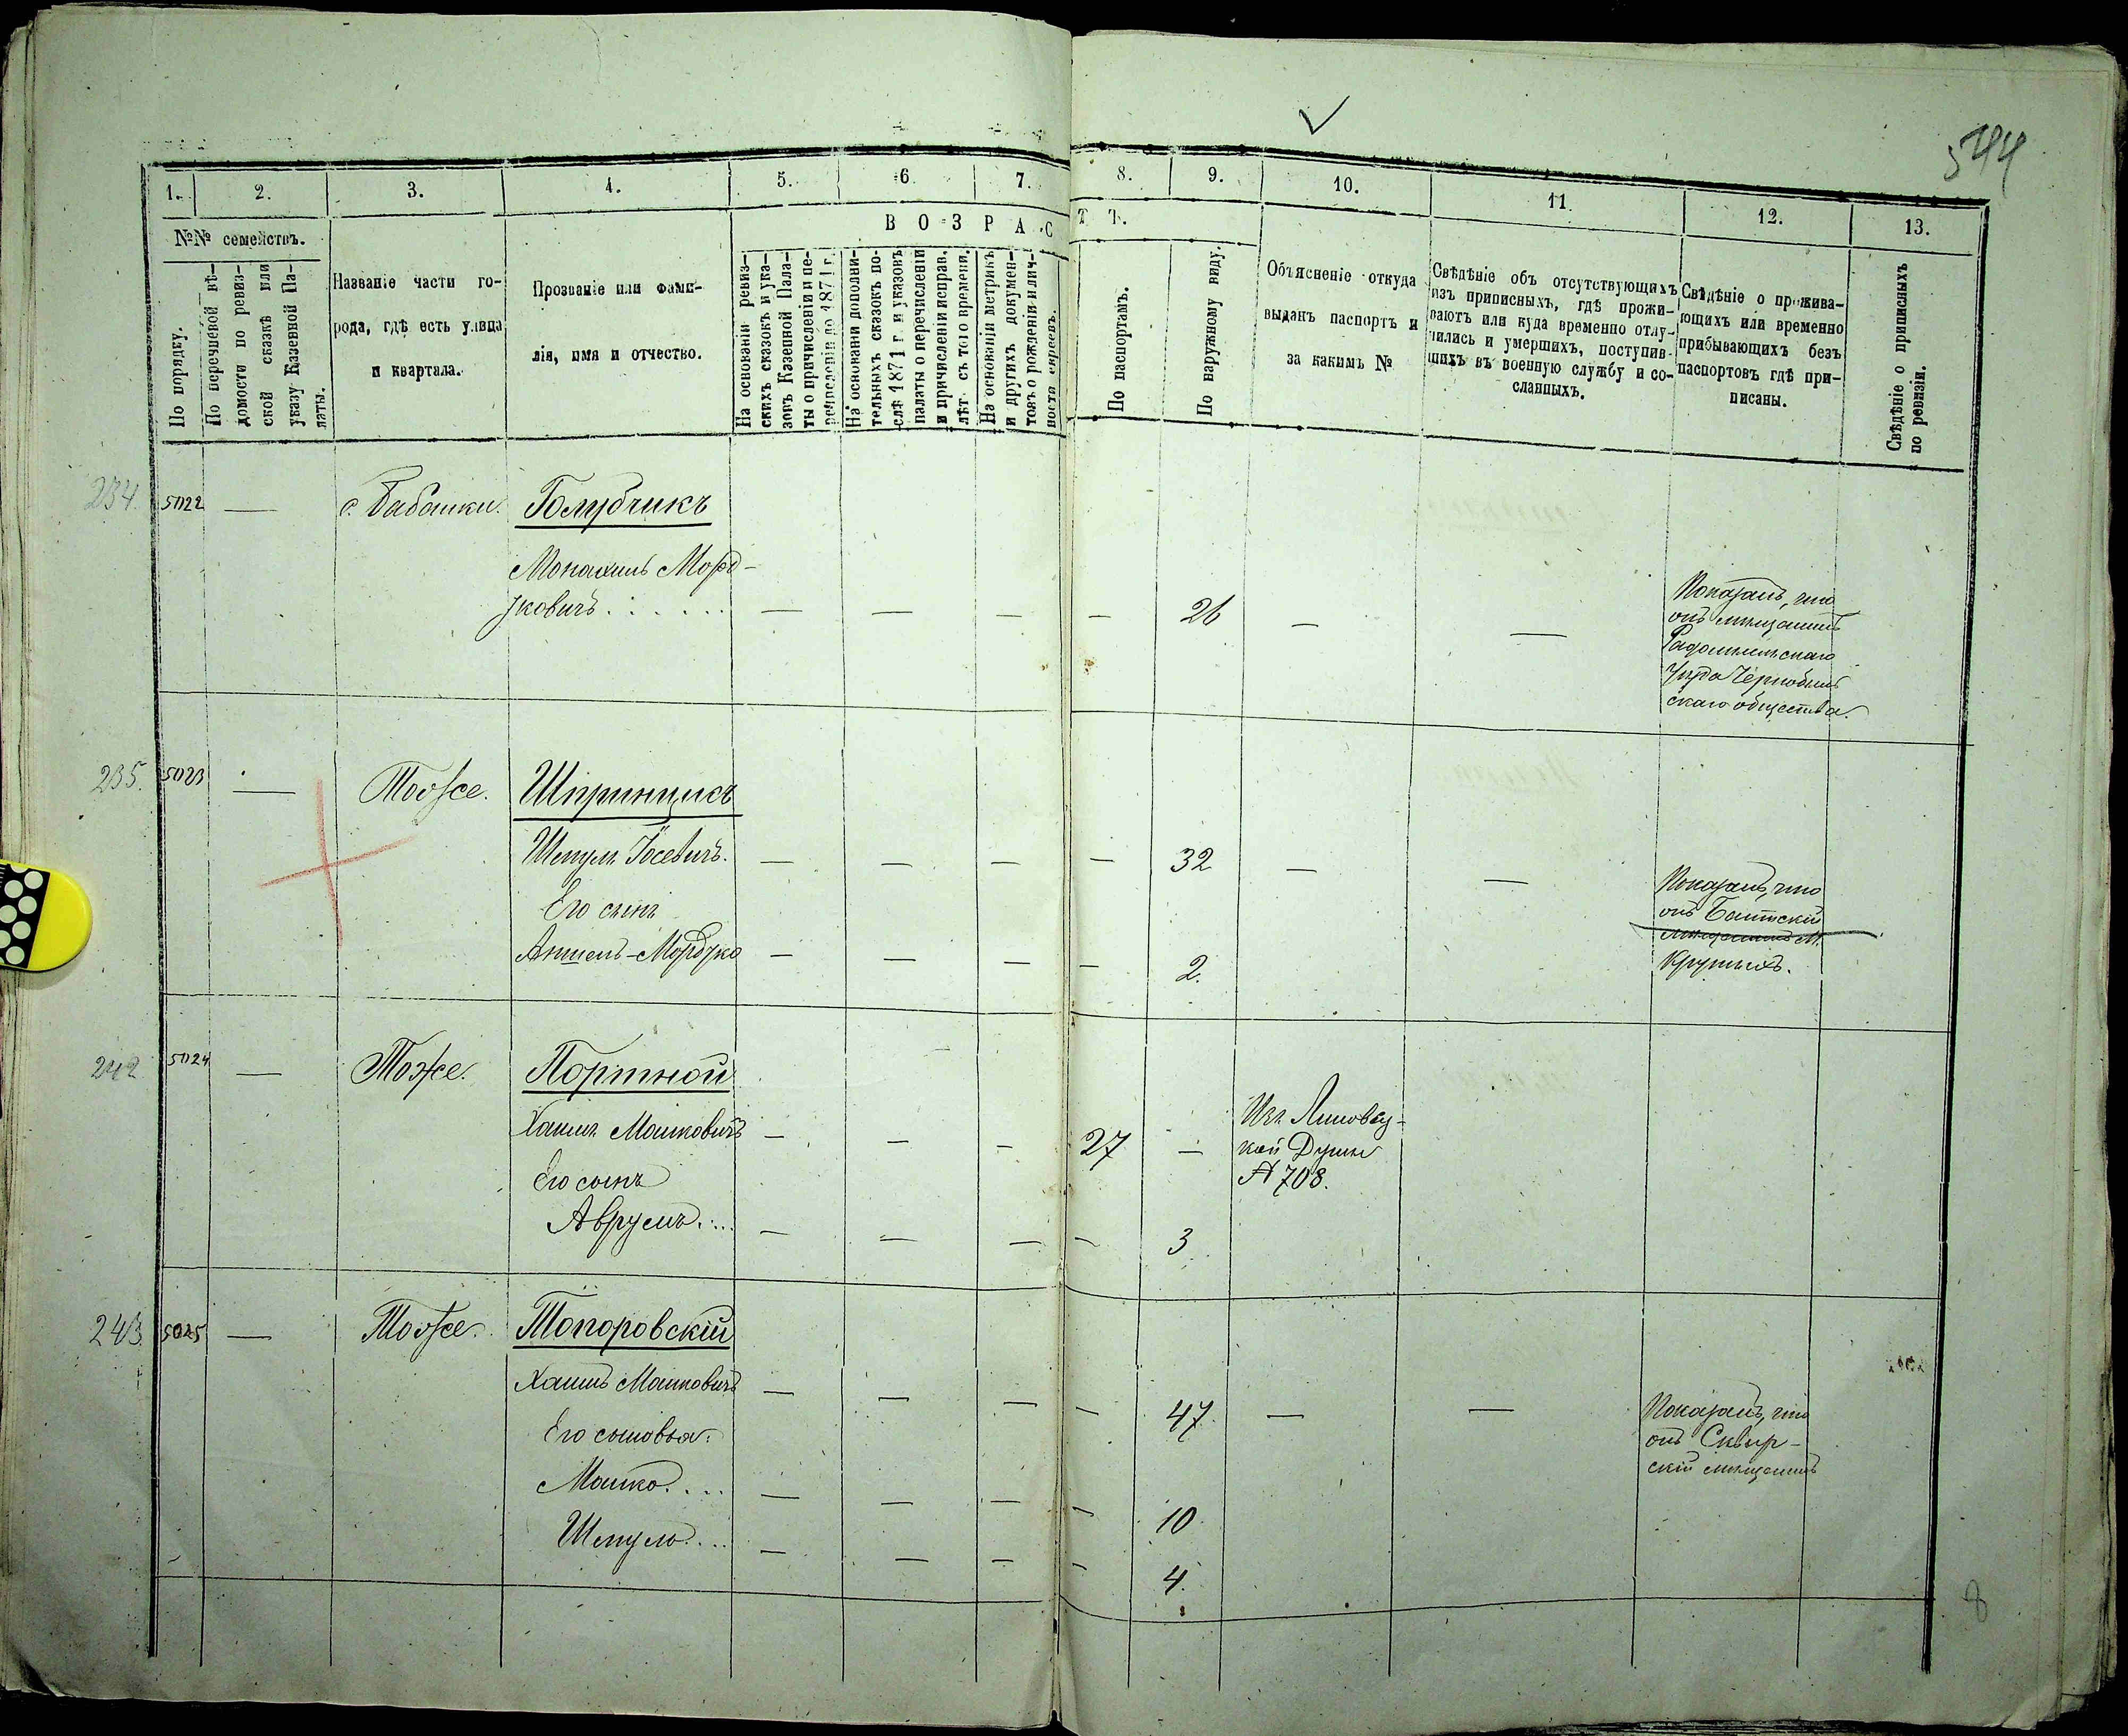 544
1. 2. 3. 4. 5. 6. 7. 8. 9. 10. 11. 12. 13.
№№ семействъ.
В О З Р А С Т Ъ.
По порядку.
По перечневой вѣ-
домости по ревиз-
ской сказкѣ или
указу Казенной Па-
латы.
Названіе части го-
рода, гдѣ есть улица
и квартала.
Прозваніе или фами-
лія, имя и отчество.
На основаніи ревиз-
скихъ сказокъ и ука-
зовъ Казенной Пала-
ты о причисленіи и пе-
речисленіи до 1871 г.
На основаніи дополни-
тельныхъ сказокъ по-
слѣ 1871 г. и указовъ
палаты о перечисленіи
и причисленіи исправ.
лѣт съ того времени.
На основаніи метрикъ
и другихъ докумен-
товъ о рожденіи и лич-
ности евреевъ.
По паспортамъ.
По наружному виду.
Объясненіе откуда
выданъ паспортъ и
за какимъ №
Свѣдѣніе объ отсутствующихъ
изъ приписныхъ, гдѣ прожи-
ваютъ или куда временно отлу-
чились и умершихъ, поступив-
шихъ въ военную службу и со-
сланныхъ.
Свѣдѣніе о прожива-
ющихъ или временно
прибывающихъ безъ
паспортовъ гдѣ при-
писаны.
Свѣдѣніе о приписныхъ
по ревизіи.
234. 5022 — с. Бабанки. Голубчикъ
Монашъ Морд-
ковичъ . . . . . . — — — — 26 — —
Показалъ, что
онъ мѣщанинъ
Радомысльскаго
Уѣзда Чернобыль
скаго общества.
235. 5023 — Тоже. Шпринцисъ
Шмулъ Іосевичъ. — — — — 32 — —
Показалъ, что
онъ Балтскій
мѣщанинъ м.
Крутыхъ.
Его сынъ
Аншель-Мордко — — — — 2.
242 5024 — Тоже. Портной
Хаимъ Мошковичъ — — — 27 —
Изъ Липовец-
кой Думы
№ 708.
Его сынъ
Аврумъ . . . . — — — — 3
243. 5025 — Тоже. Топоровскій
Хаимъ Мошковичъ — — — — 47. — —
Показалъ, что
онъ Сквир-
скій мѣщанинъ
Его сыновья:
Мошко . . . . — — — — 10
Шмуль . . . — — — — 4.
8